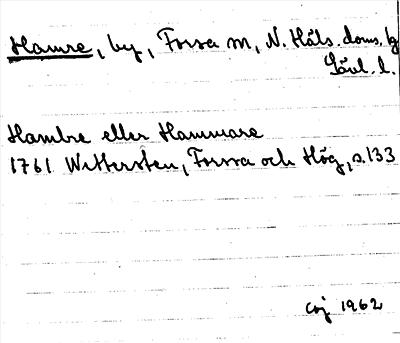 Hamre, by, Forsa sn, N. Häls. doms. bg
Gävl. l.
Hambre eller Hammare
1761 Wettersten, Forssa och Hög, s. 133
CJ 1962